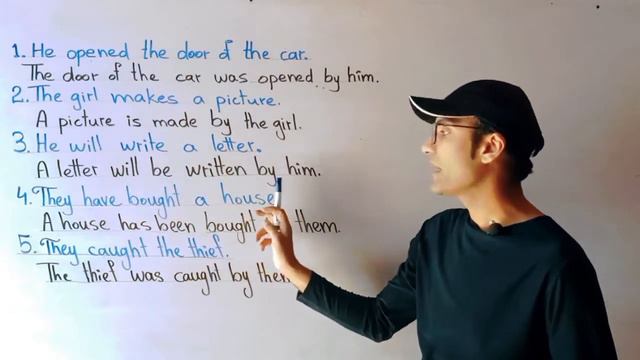 1. He opened the door of the car.
The door of the car was opened by him.
2. The girl makes a picture.
A picture is made by the girl.
3. He will write a letter.
A letter will be written by him.
4. They have bought a house
A house has been bought them.
5. They caught the thief.
The thief was caught by